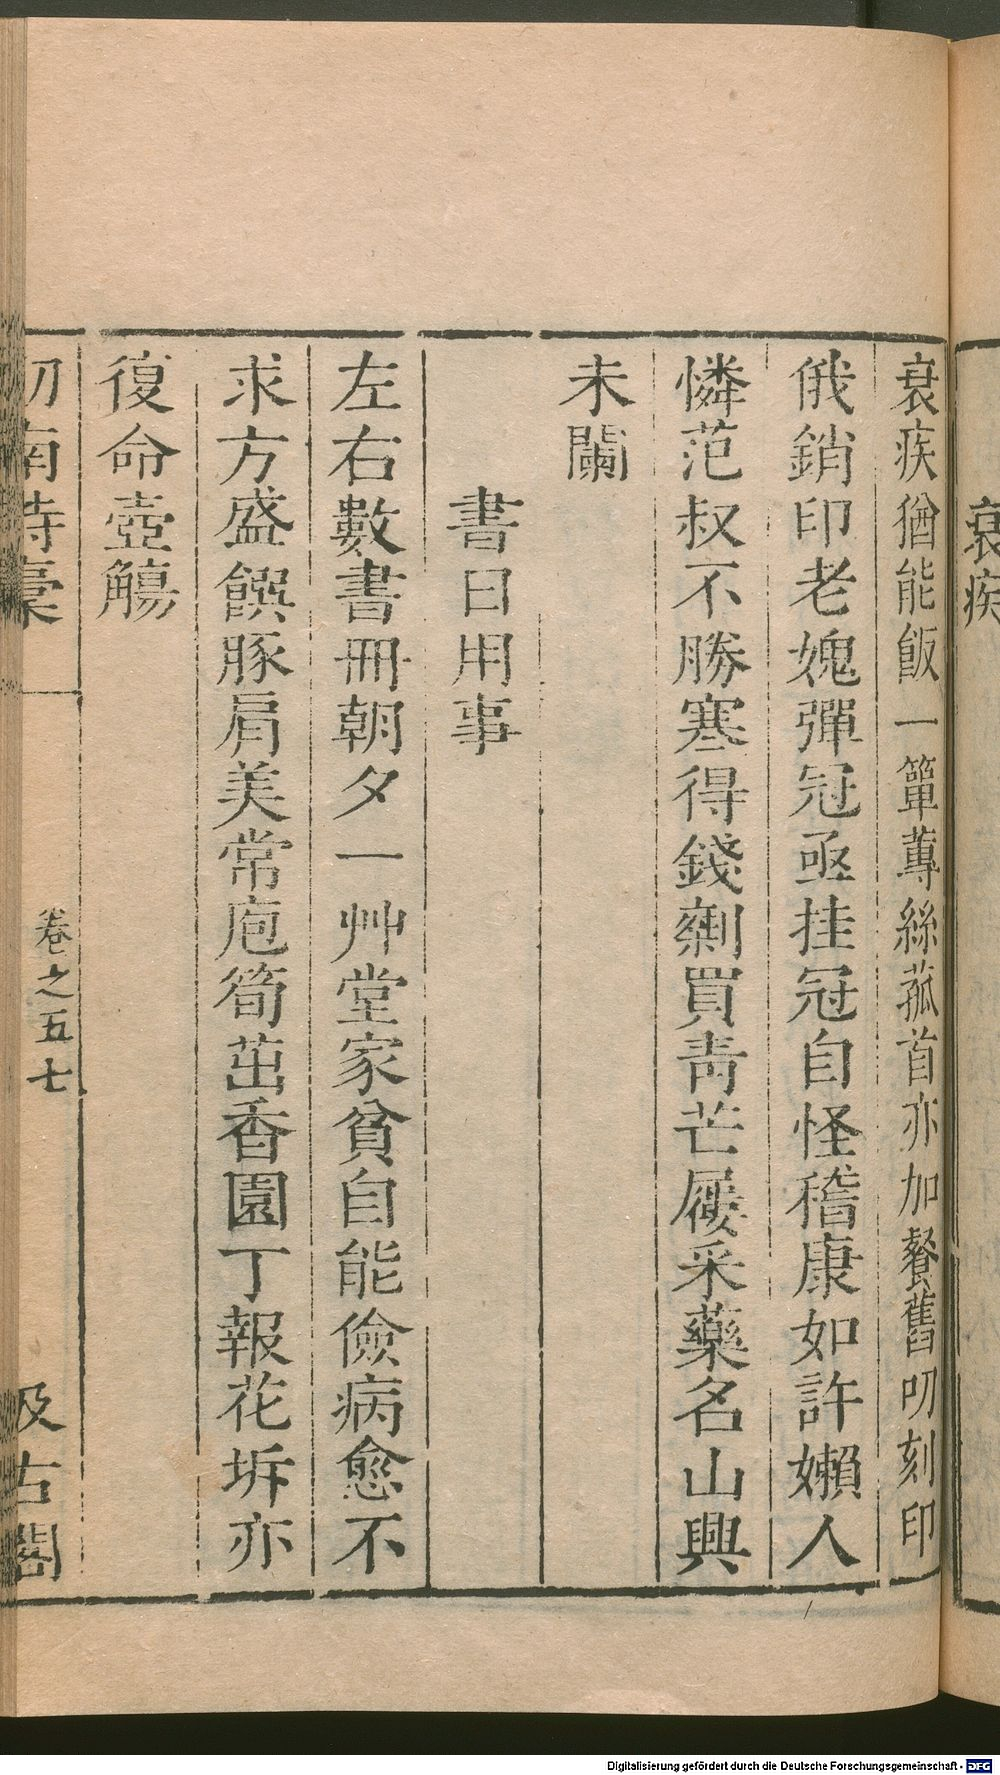 衰疾
衰疾猶能飯一簞蓴絲菰首亦加餐舊叨刻印
俄銷印老媿彈冠亟挂冠自怪稽康如許嬾人
憐范叔不勝寒得錢剩買靑芒屨采藥名山興
未闌
書日用事
左右數書冊朝夕一艸堂家貧自能儉病愈不
求方盛饌豚肩美常庖筍茁香園丁報花坼亦
復命壺觴
劒南詩稾
卷之五七
汲古閣
Digitalisierung gefördert durch die Deutsche Forschungsgemeinschaft - DFG